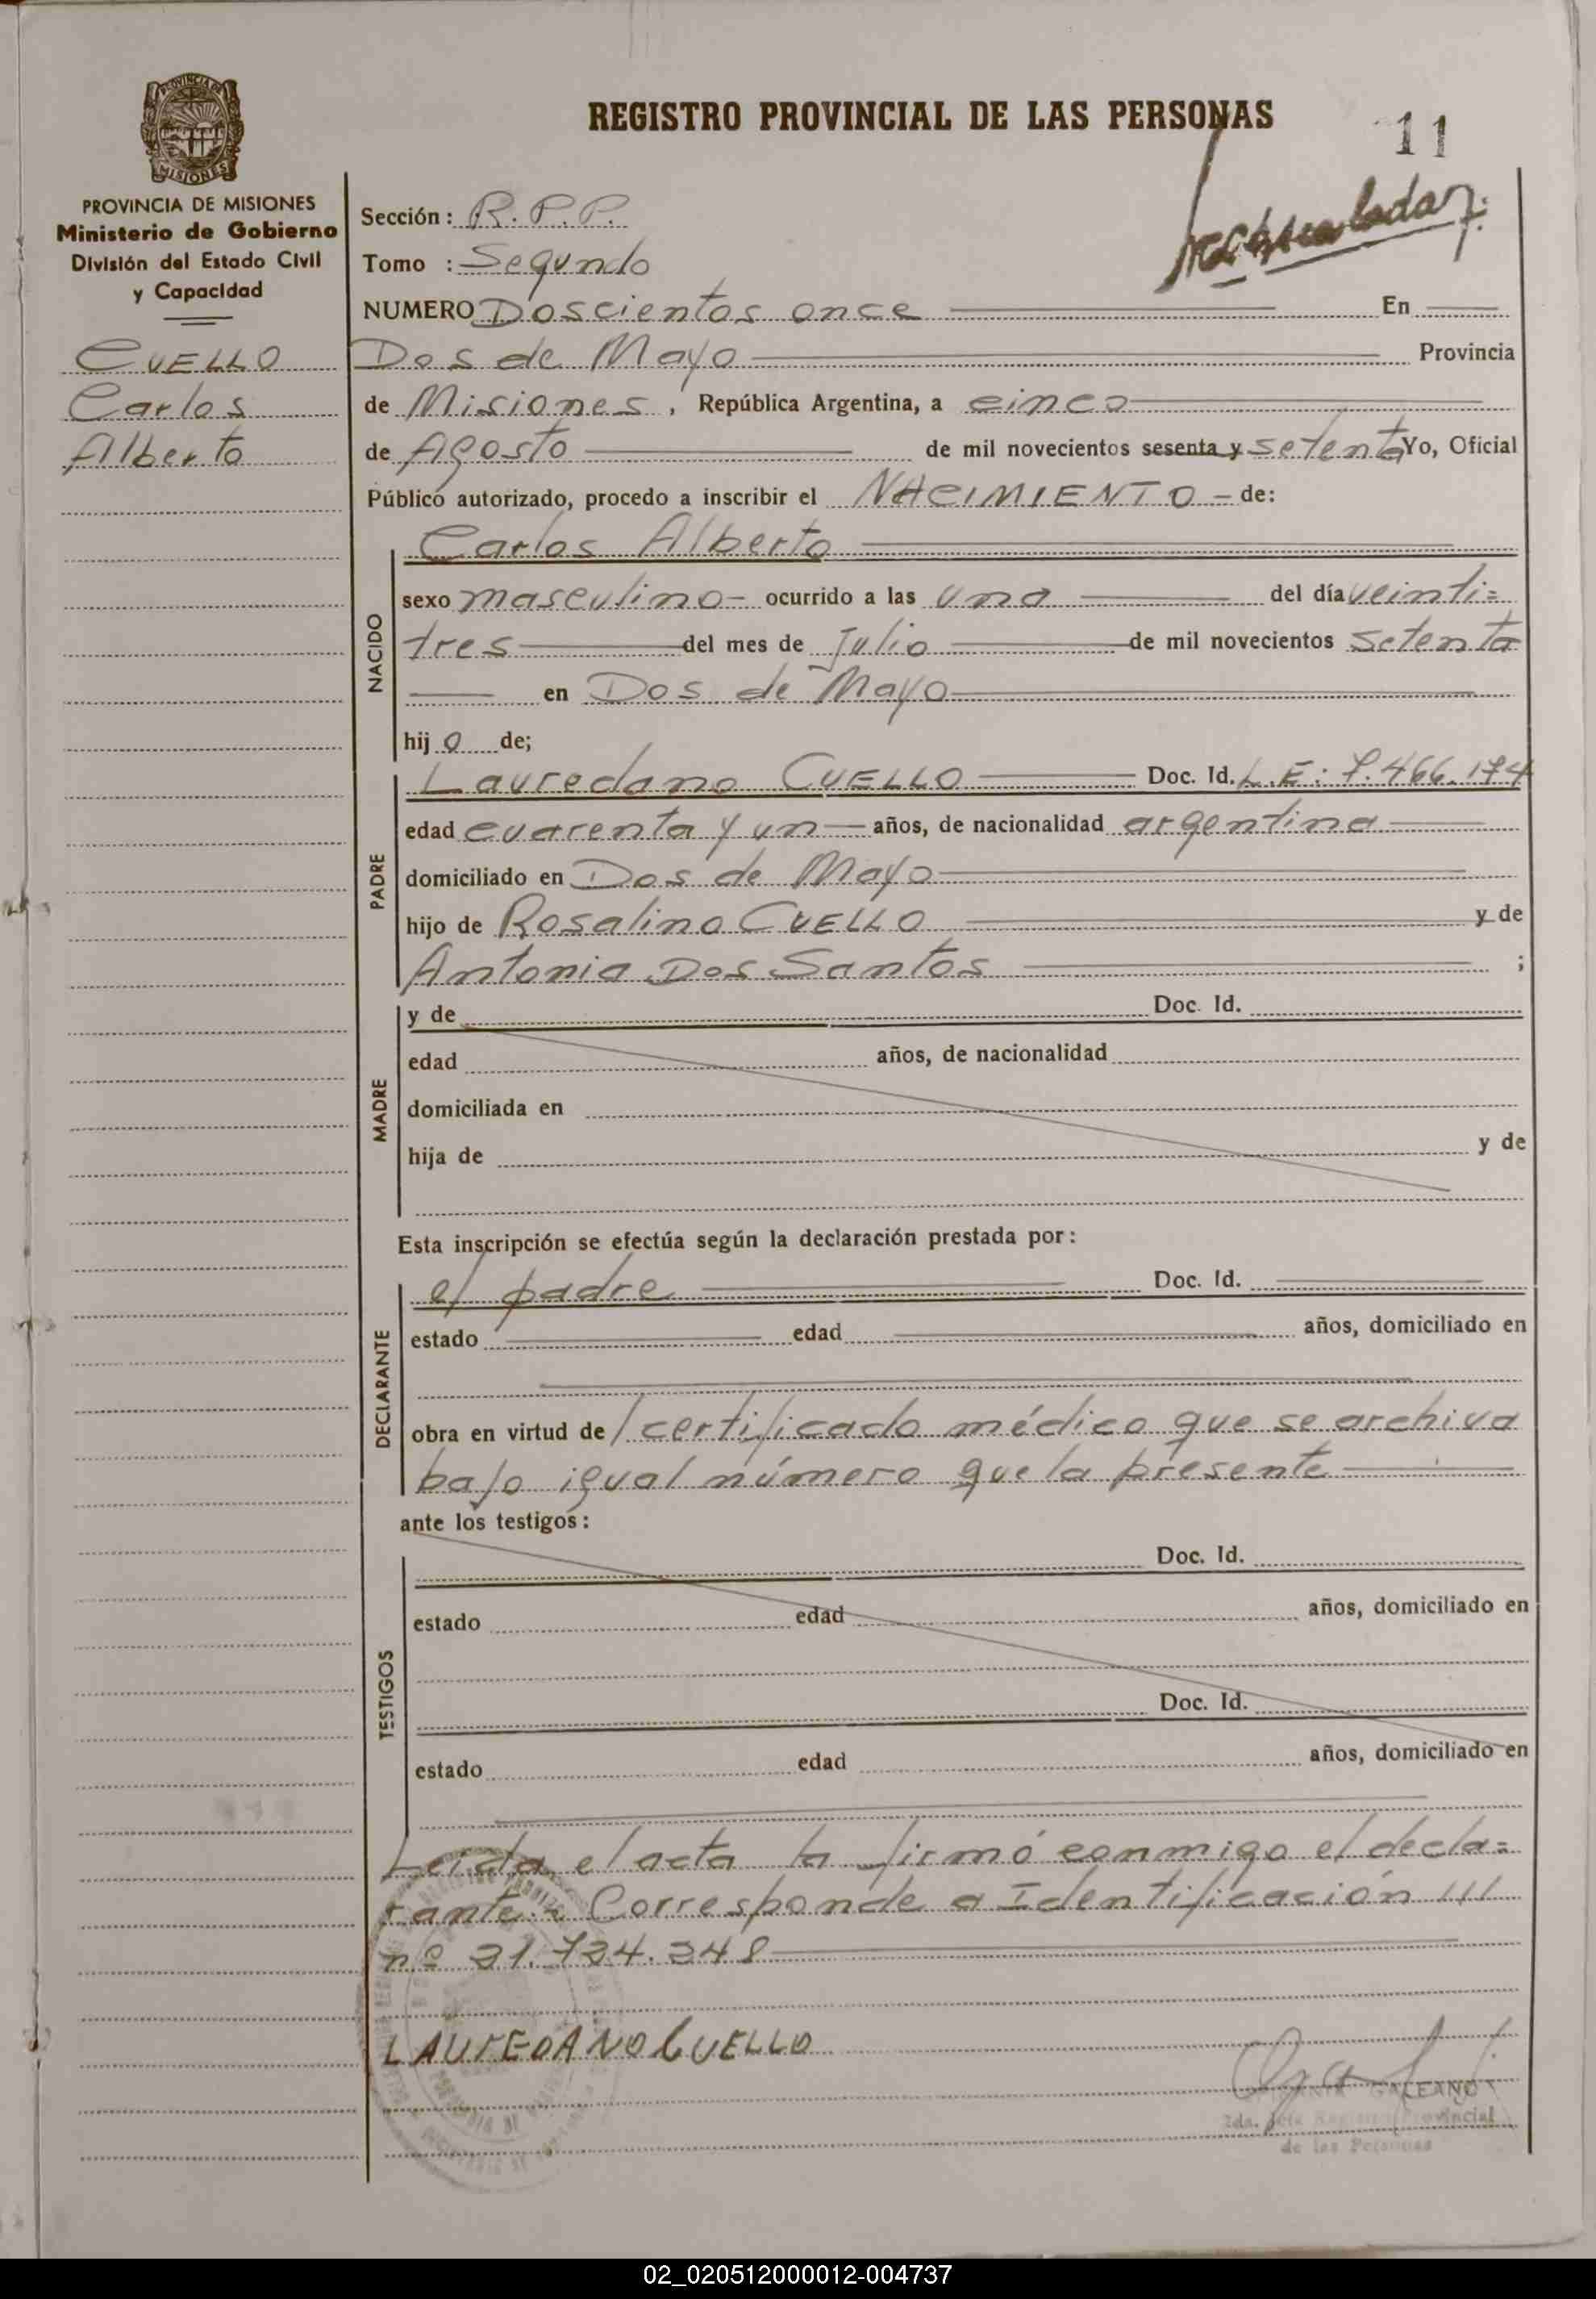 REGISTRO PROVINCIAL DE LAS PERSONAS
11
PROVINCIA DE MISIONES
MISIONES
PROVINCIA DE MISIONES
Ministerio de Gobierno
División del Estado Civil
y Capacidad
CUELLO
Carlos
Alberto
Sección: R.P.P.
Tomo : Segundo
NUMERO Doscientos once En
Dos de Mayo Provincia
de Misiones, República Argentina, a cinco
de Agosto de mil novecientos sesenta y setenta Yo, Oficial
Público autorizado, procedo a inscribir el NACIMIENTO de:
NACIDO
Carlos Alberto
sexo masculino ocurrido a las una del día veinti=
tres del mes de Julio de mil novecientos setenta
en Dos de Mayo
hijo de;
PADRE
Lauredano CUELLO Doc. Id. L.E: 7.466.174
edad cuarenta y un años, de nacionalidad argentina
domiciliado en Dos de Mayo
hijo de Rosalino CUELLO y de
Antonia Dos Santos ;
MADRE
y de Doc. Id.
edad años, de nacionalidad
domiciliada en
hija de y de
Esta inscripción se efectúa según la declaración prestada por:
DECLARANTE
el padre Doc. Id.
estado edad años, domiciliado en
obra en virtud de/certificado médico que se archiva
bajo igual número que la presente
ante los testigos:
TESTIGOS
Doc. Id.
estado edad años, domiciliado en
Doc. Id.
estado edad años, domiciliado en
Leída el acta la firmó conmigo el decla=
rante.= Corresponde a Identificación ///
nº 21.724.248
LAUREDANO CUELLO
GALEANO
Provincial
de las Personas
02_020512000012-004737